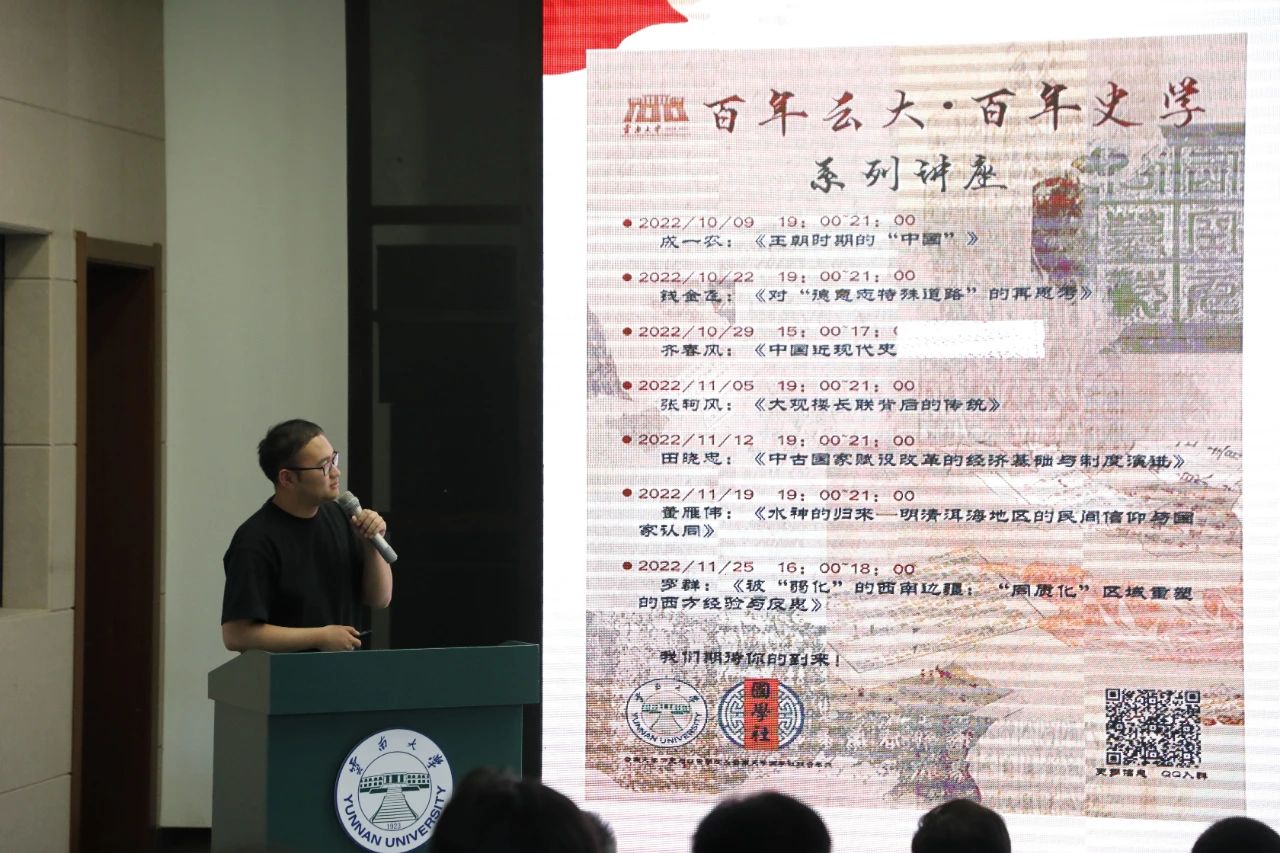 百年云大·百年史学
系列讲座
2022/10/09 19：00~21：00
成一农：《王朝时期的“中国”》
2022/10/22 19：00~21：00
钱金飞：《对“德意志特殊道路”的再思考》
2022/10/29 15：00~17：
齐春风：《中国近现代史
2022/11/05 19：00~21：00
张轲风：《大观楼长联背后的传统》
2022/11/12 19：00~21：00
田晓忠：《中古国家赋役改革的经济基础与制度演进》
2022/11/19 19：00~21：00
董雁伟：《水神的归来—明清洱海地区的民间信仰与国
家认同》
2022/11/25 16：00~18：00
罗群：《被“弱化”的西南边疆：“周质化”区域重塑
的西方经验与反思》
我们期待你的到来！
云南大学
YUNNAN UNIVERSITY
國學社
更多信息 QQ入群
雲南大学
1923
YUNNAN UNIVERSITY